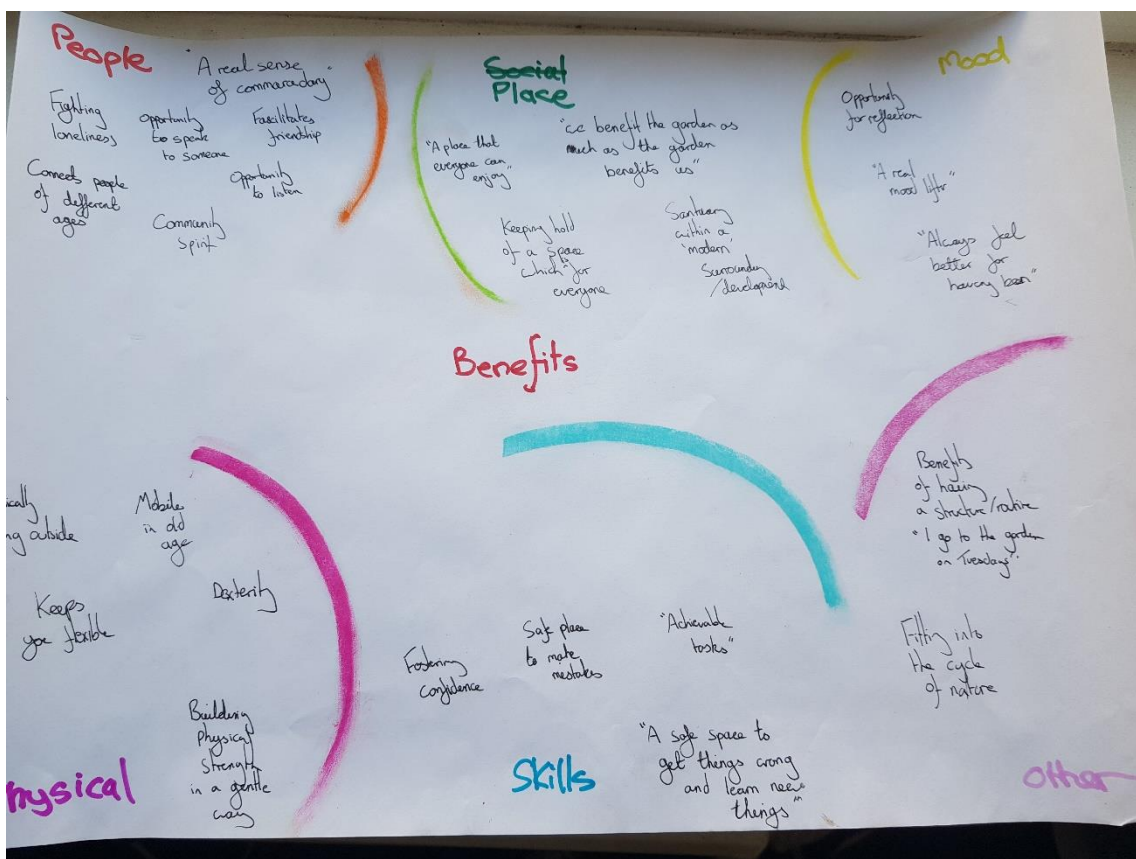 People
"A real sense
of commaradary"
Fighting
loneliness
Opportunity
to speak
to someone
Fascilitates
friendship
Connects people
of different
ages
Opportunity
to listen
Community
Spirit
Social
Place
"A place that
everyone can
enjoy"
"we benefit the garden as
much as the garden
benefits us"
Keeping hold
of a space
which for
everyone
Santuary
within a
'modern'
Surrounding
/development
Mood
Opportunity
for reflection
"A real
mood lifter"
"Always feel
better for
having been"
Benefits
ically
ng outside
Mobile
in old
age
Dexterity
Keeps
you flexible
Building
Physical
Strength
in a gentle
way
hysical
Fostering
confidence
Safe place
to make
mistakes
"Achievable
tasks"
"A safe space to
get things wrong
and learn new
things"
Skills
Benefits
of having
a structure/routine
"I go to the garden
on Tuesdays".
Fitting into
the cycle
of nature
Other